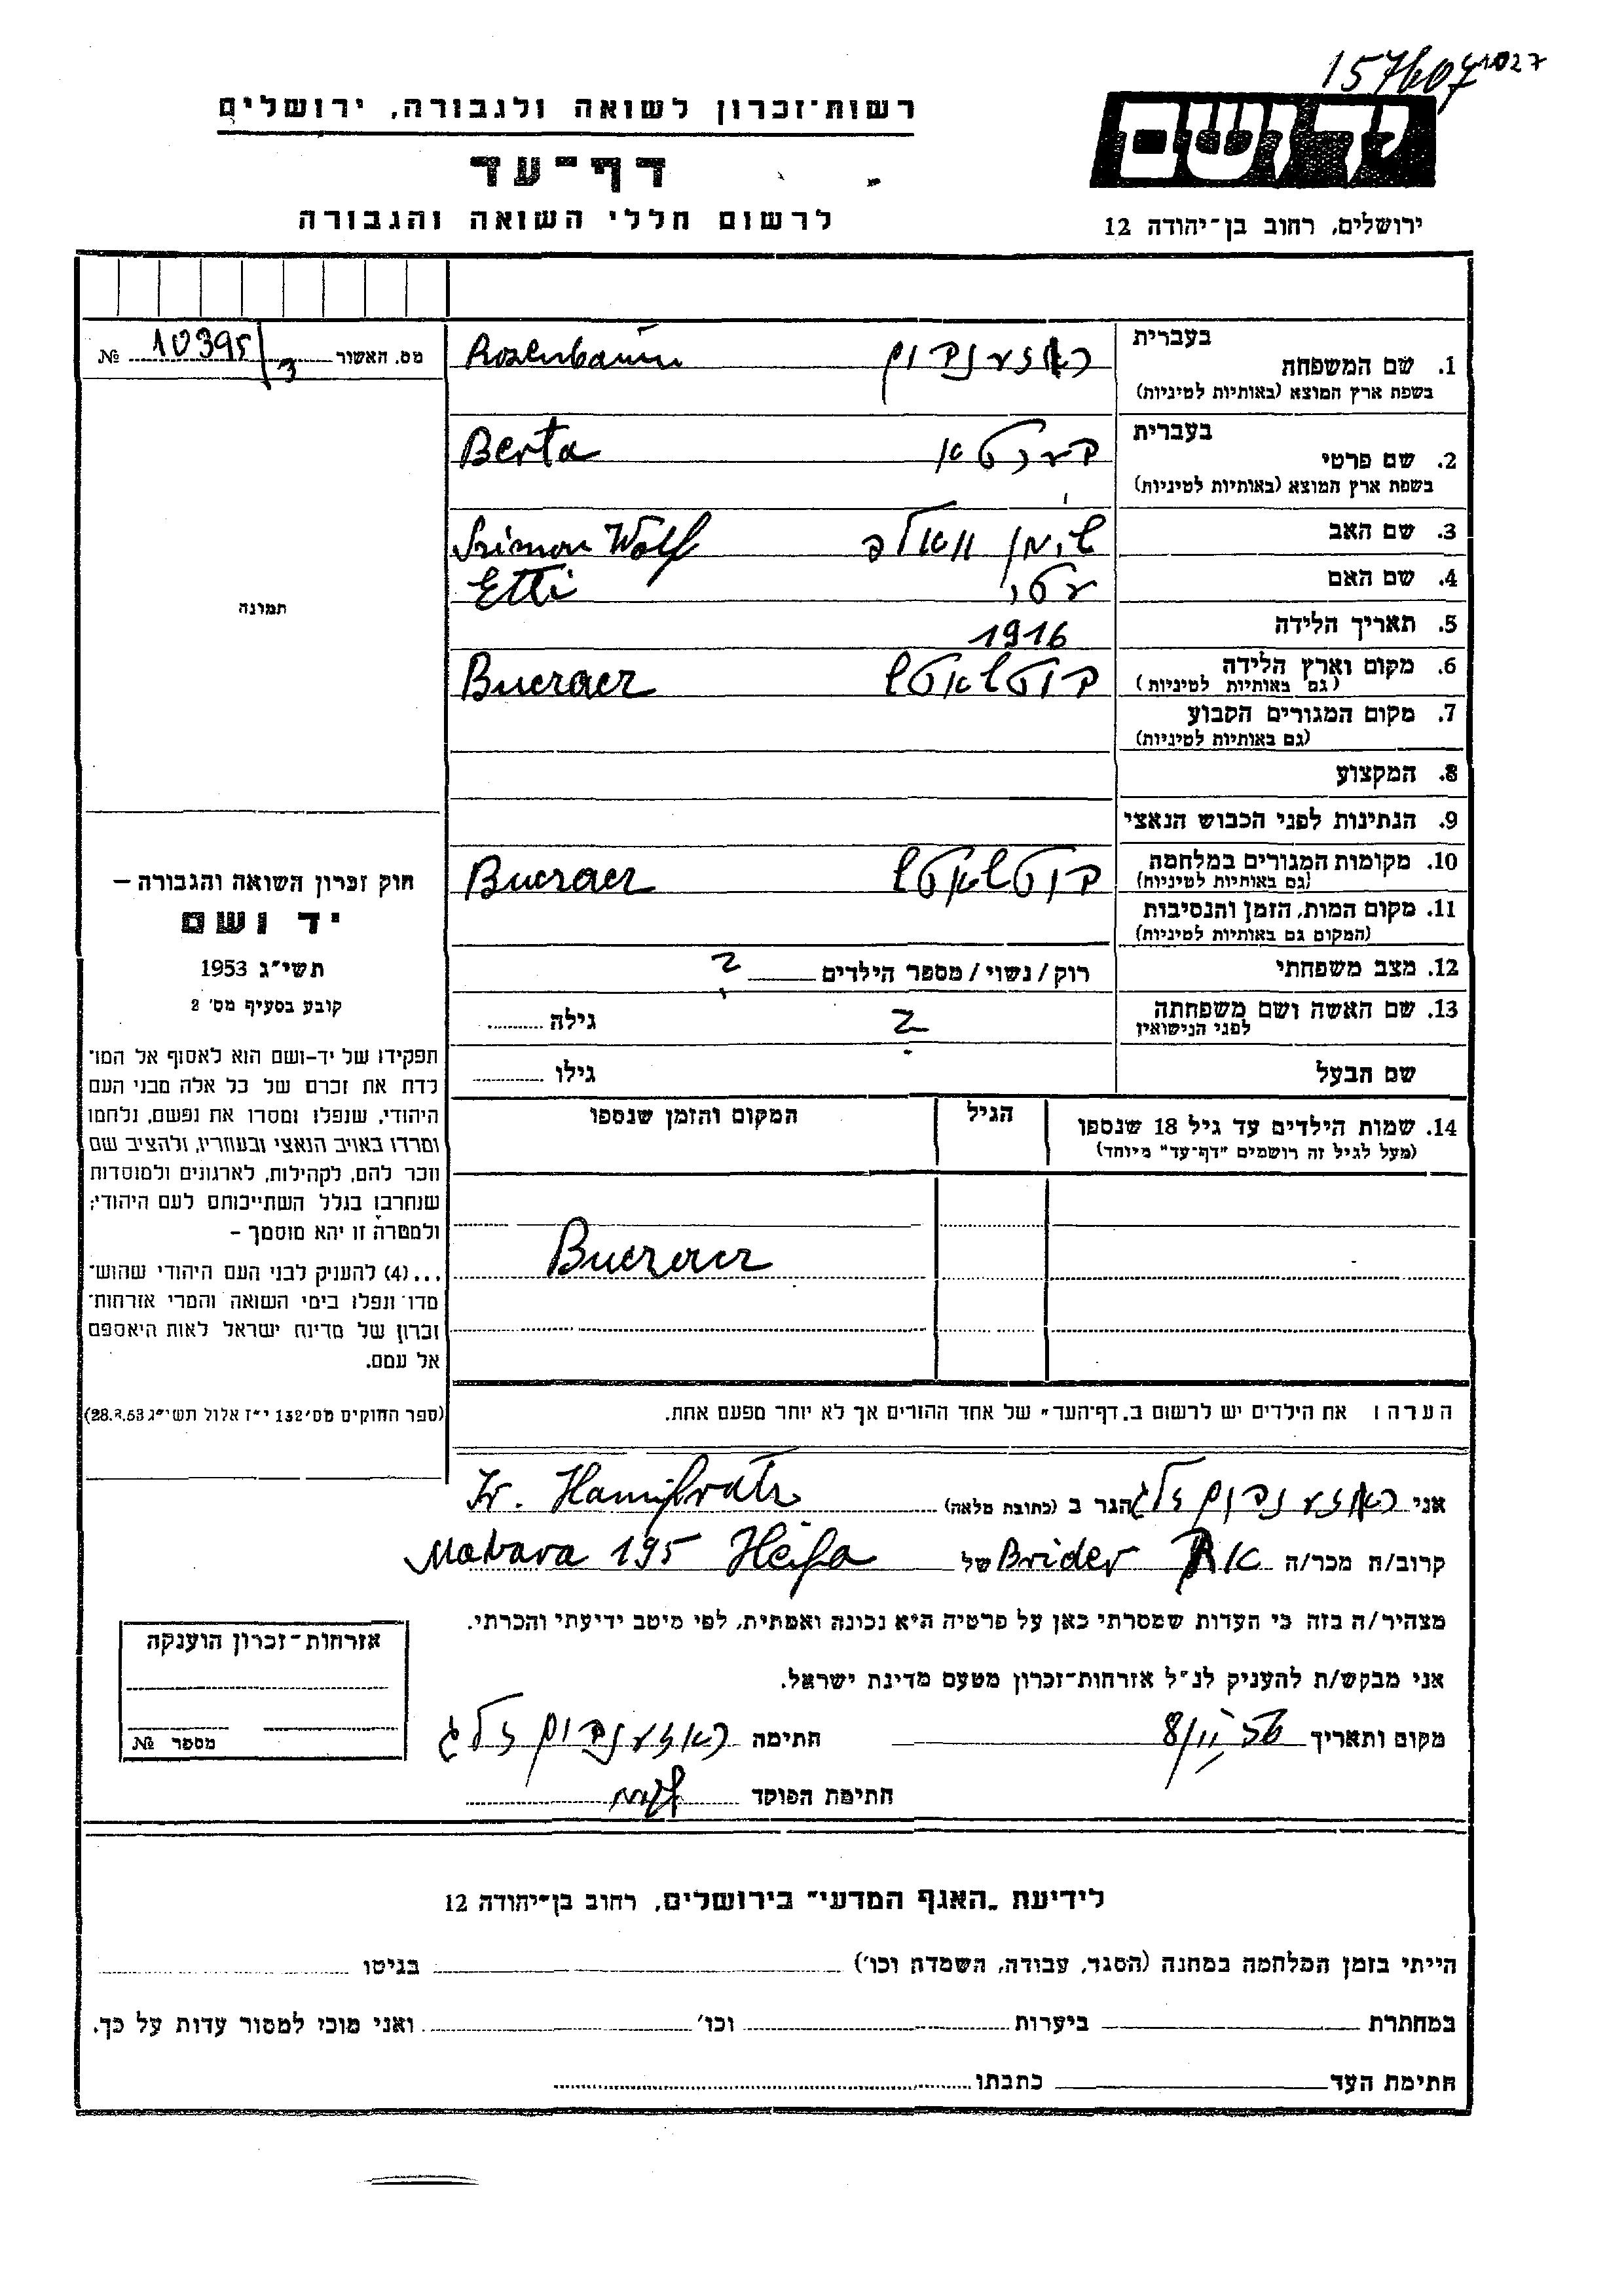 157607 41027
ידושם
ירושלים, רחוב בן־יהודה 12
רשות־זכרון לשואה ולגבורה, ירושלים
דף־עד
לרשום חללי השואה והגבורה
מס. האשור 10395/3 №
בעברית
1. שם המשפחה ראזענבוים Rosenbaum
בשפת ארץ המוצא (באותיות לטיניות)
בעברית
2. שם פרטי בערטא Berta
בשפת ארץ המוצא (באותיות לטיניות)
3. שם האב שימן וואלף Szimon Wolf
4. שם האם עטי Etti
5. תאריך הלידה 1916
6. מקום וארץ הלידה
(גם באותיות לטיניות)
7. מקום המגורים הקבוע
(גם באותיות לטיניות)
8. המקצוע
9. הנתינות לפני הכבוש הנאצי
10. מקומות המגורים במלחמה
(גם באותיות לטיניות)
11. מקום המות, הזמן והנסיבות
(המקום גם באותיות לטיניות)
12. מצב משפחתי רוק/נשוי/ מספר הילדים ?
13. שם האשה ושם משפחתה ? גילה
לפני הנישואין
שם הבעל גילו
14. שמות הילדים עד גיל 18 שנספו הגיל המקום והזמן שנספו
(מעל לגיל זה רושמים "דף־עד" מיוחד)
הערה: את הילדים יש לרשום ב„דף־העד" של אחד ההורים אך לא יותר מפעם אחת.
תמונה
חוק זכרון השואה והגבורה –
יד ושם
תשי"ג 1953
קובע בסעיף מס' 2
תפקידו של יד-ושם הוא לאסוף אל המו־
לדת את זכרם של כל אלה מבני העם
היהודי, שנפלו ומסרו את נפשם, נלחמו
ומרדו באויב הנאצי ובעוזריו, ולהציב שם
וזכר להם, לקהילות, לארגונים ולמוסדות
שנחרבו בגלל השתייכותם לעם היהודי;
ולמטרה זו יהא מוסמך –
...(4) להעניק לבני העם היהודי שהוש־
מדו ונפלו בימי השואה והמרי אזרחות־
זכרון של מדינת ישראל לאות היאספם
אל עמם.
(ספר החוקים מס' 132 י"ז אלול תשי"ג 28.8.53)
אני ראזענבוים זליג הגר ב (כתובת מלאה)
קרוב/ה מכר/ה אח Brider של Mabara 195 Heifa
מצהיר/ה בזה כי העדות שמסרתי כאן על פרטיה היא נכונה ואמתית, לפי מיטב ידיעתי והכרתי.
אני מבקש/ת להעניק לנ"ל אזרחות־זכרון מטעם מדינת ישראל.
מקום ותאריך 8/II 56 חתימה ראזענבוים זליג
חתימת הפוקד
אזרחות־זכרון הוענקה
מספר №
לידיעת „האגף המדעי" בירושלים, רחוב בן־יהודה 12
הייתי בזמן המלחמה במחנה (הסגר, עבודה, השמדה וכו') בגיטו
במחתרת ביערות וכו' ואני מוכן למסור עדות על כך.
חתימת העד כתבתו